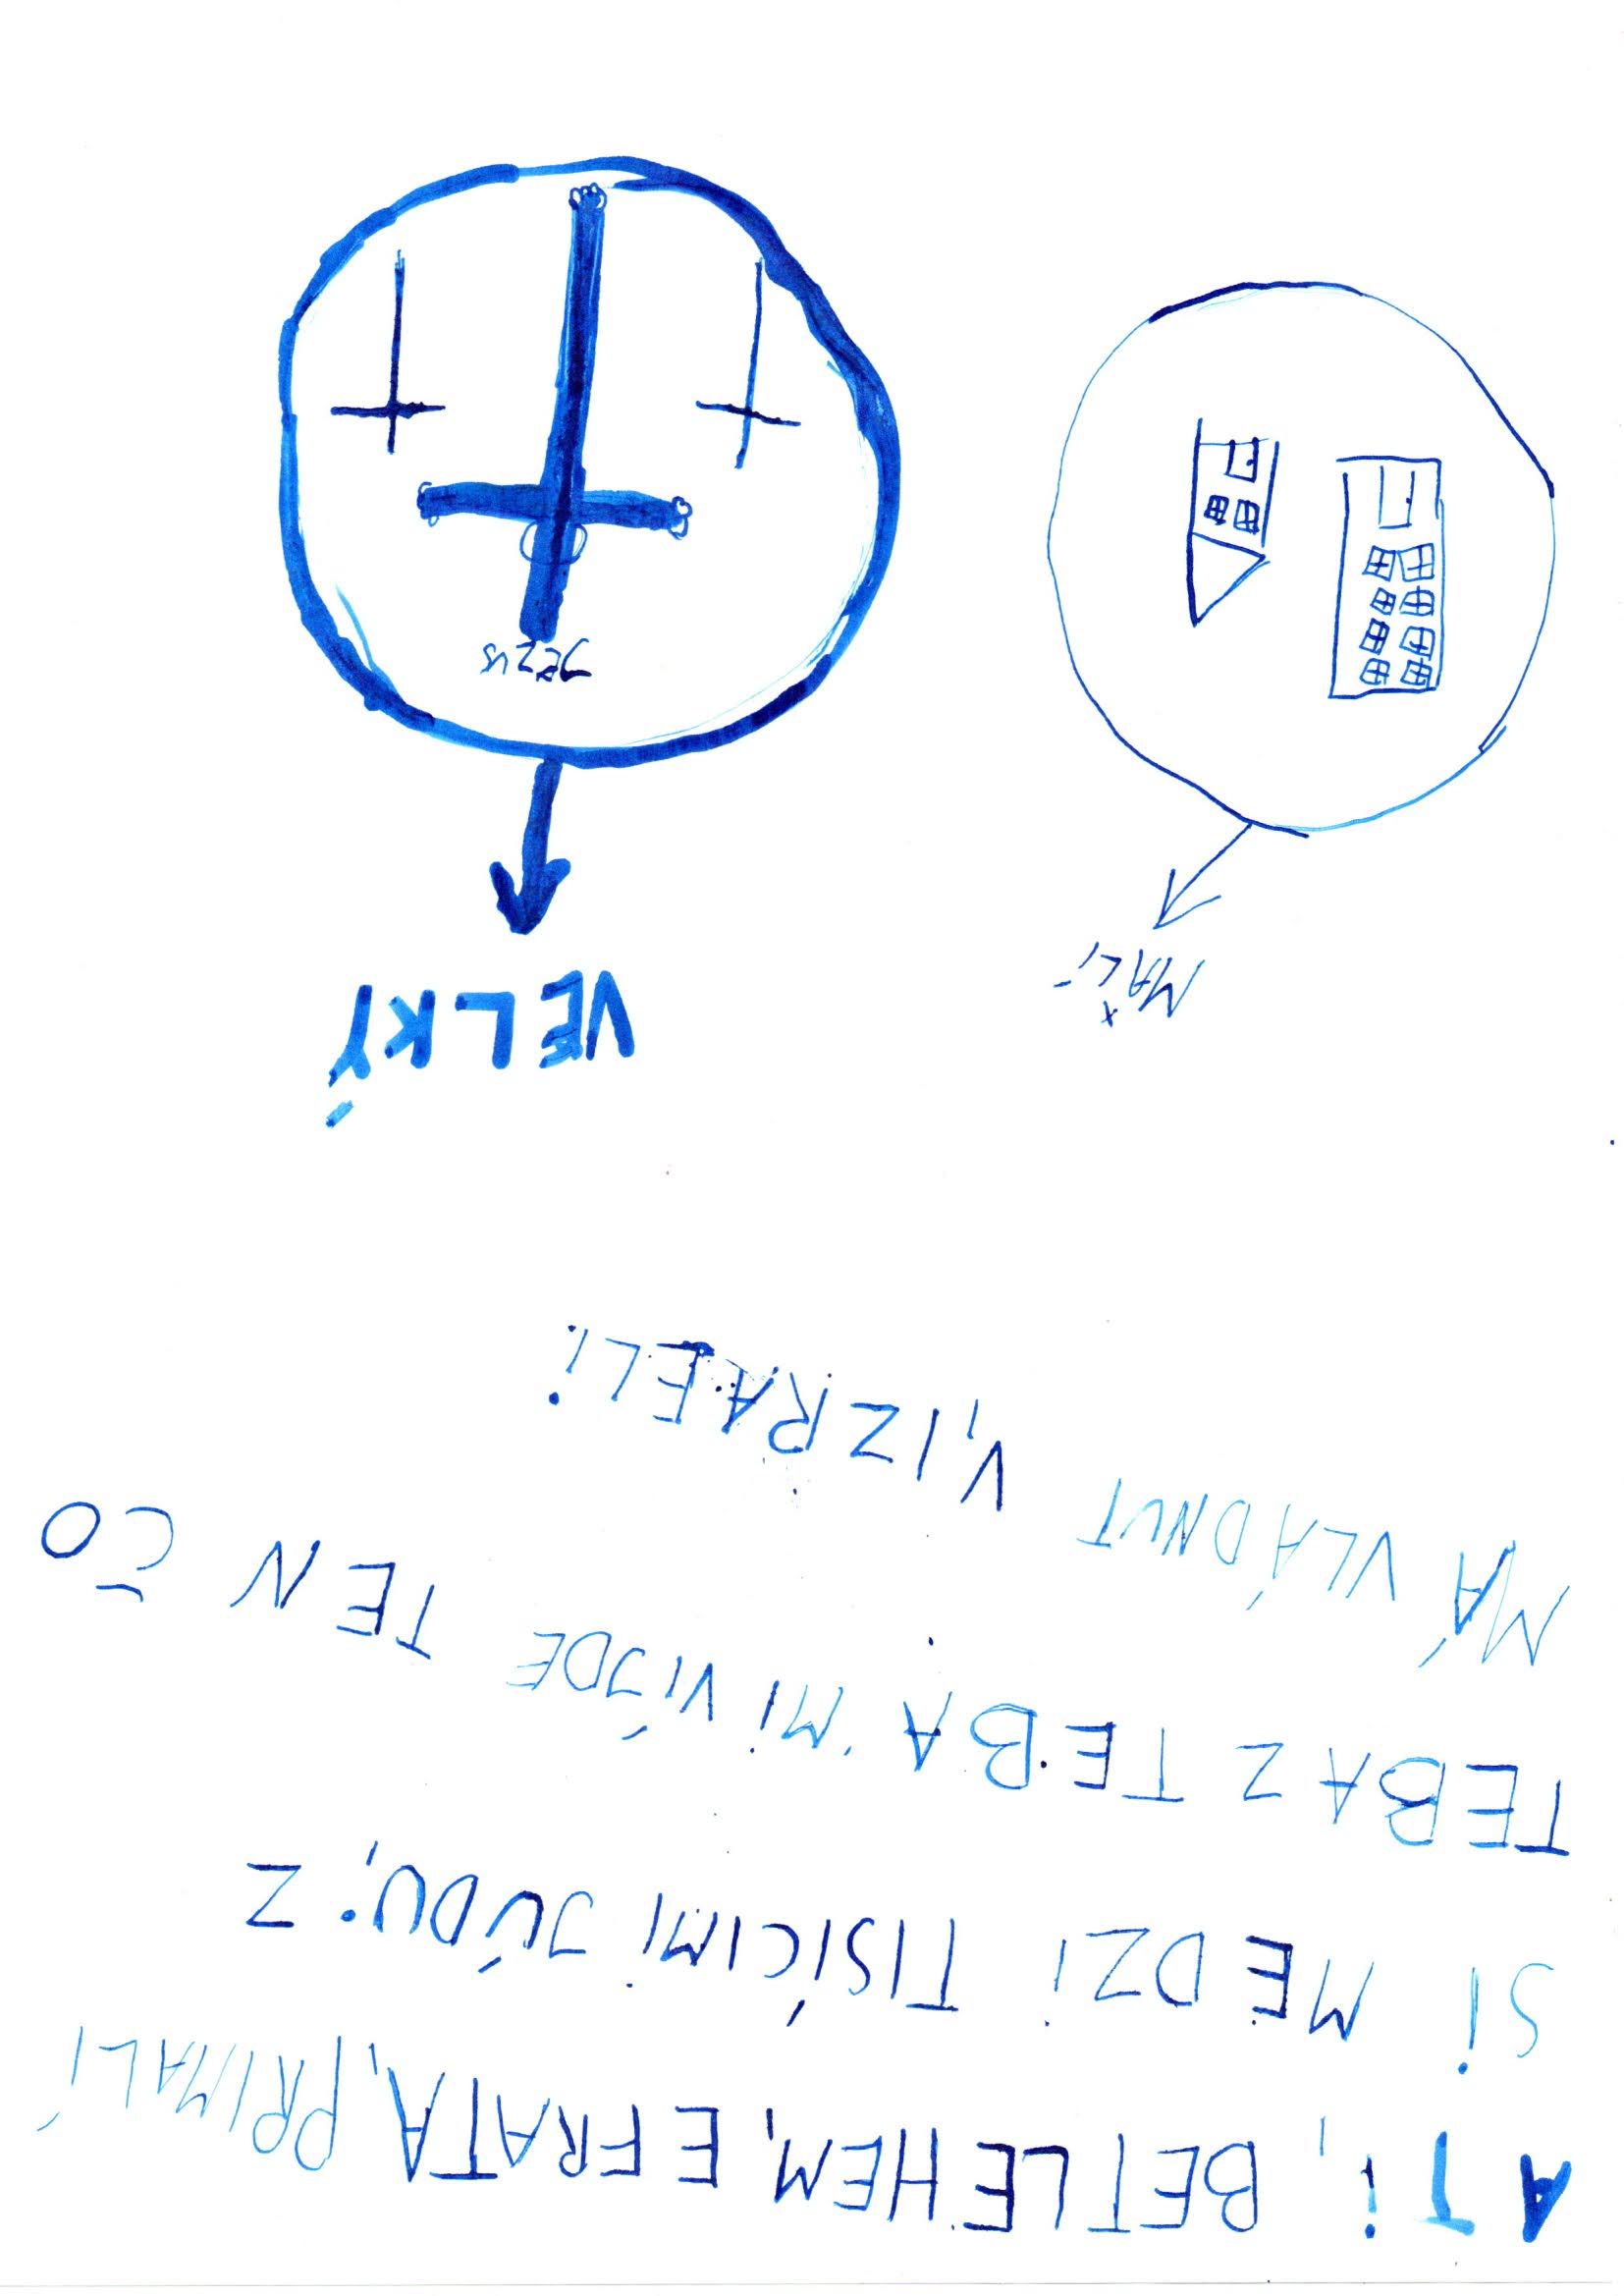 A TI, BETLEHEM, EFRATA, PRIMALÍ
SI MEDZI TISÍCIMI JÚDU; Z
TEBA Z TEBA MI VÍJDE TEN ČO
MÁ VLÁDNUT V, IZRAELI.
MALÍ
VELKÝ
JEZUS